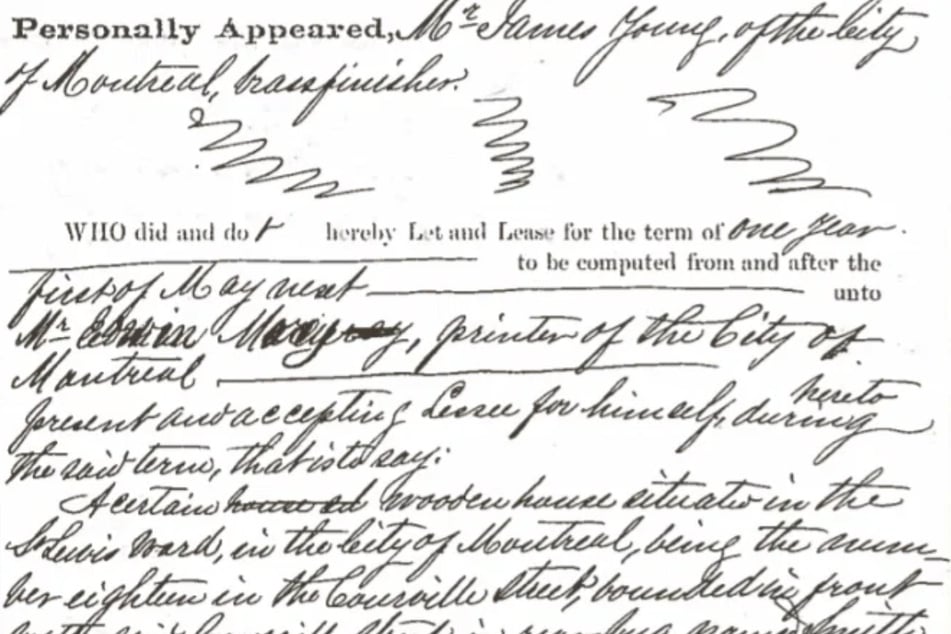 Personally Appeared, Mr James Young, of the City
of Montreal, brassfinisher.
WHO did and do t hereby Let and Lease for the term of one year.
to be computed from and after the
first of May next unto
Mr Edwin, printer of the City of
Montreal
hereto
present and accepting Lessee for himself, during
the said term, that is to say:
A certain house ad wooden house situate in the
St Lewis Ward, in the City of Montreal, being the num-
ber eighteen in the Courville Street, bounded in front
Smith